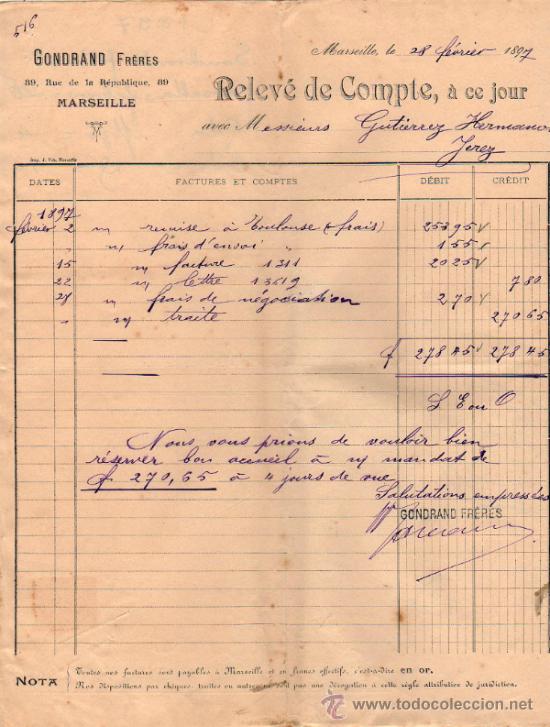 516
GONDRAND FRÈRES
89, Rue de la République, 89
MARSEILLE
Marseille, le 28 février 1897
Relevé de Compte, à ce jour
avec Messieurs Gutierrez Hermanos
Jerez
DATES FACTURES ET COMPTES DÉBIT CRÉDIT
1897
février 2 n/ remise à Toulouse (frais) 253 95
" n/ frais d'envoi " 1 55
15 n/ facture 1311 20 25
22 n/ lettre 13619 7 80
27 n/ frais de négociation 2 70
" n/ traite 270 65
f 278 45 278 45
S E ou O
Nous vous prions de vouloir bien
réserver bon accueil à n/ mandat de
f 270,65 à 4 jours de vue
Salutations empressées
GONDRAND FRÈRES
NOTA
Toutes nos factures sont payables à Marseille et en francs effectifs, c'est-à-dire en or.
Nos dispositions par chèques, traites ou autres ne sont pas une dérogation à cette règle attribution de juridiction.
todocoleccion.net